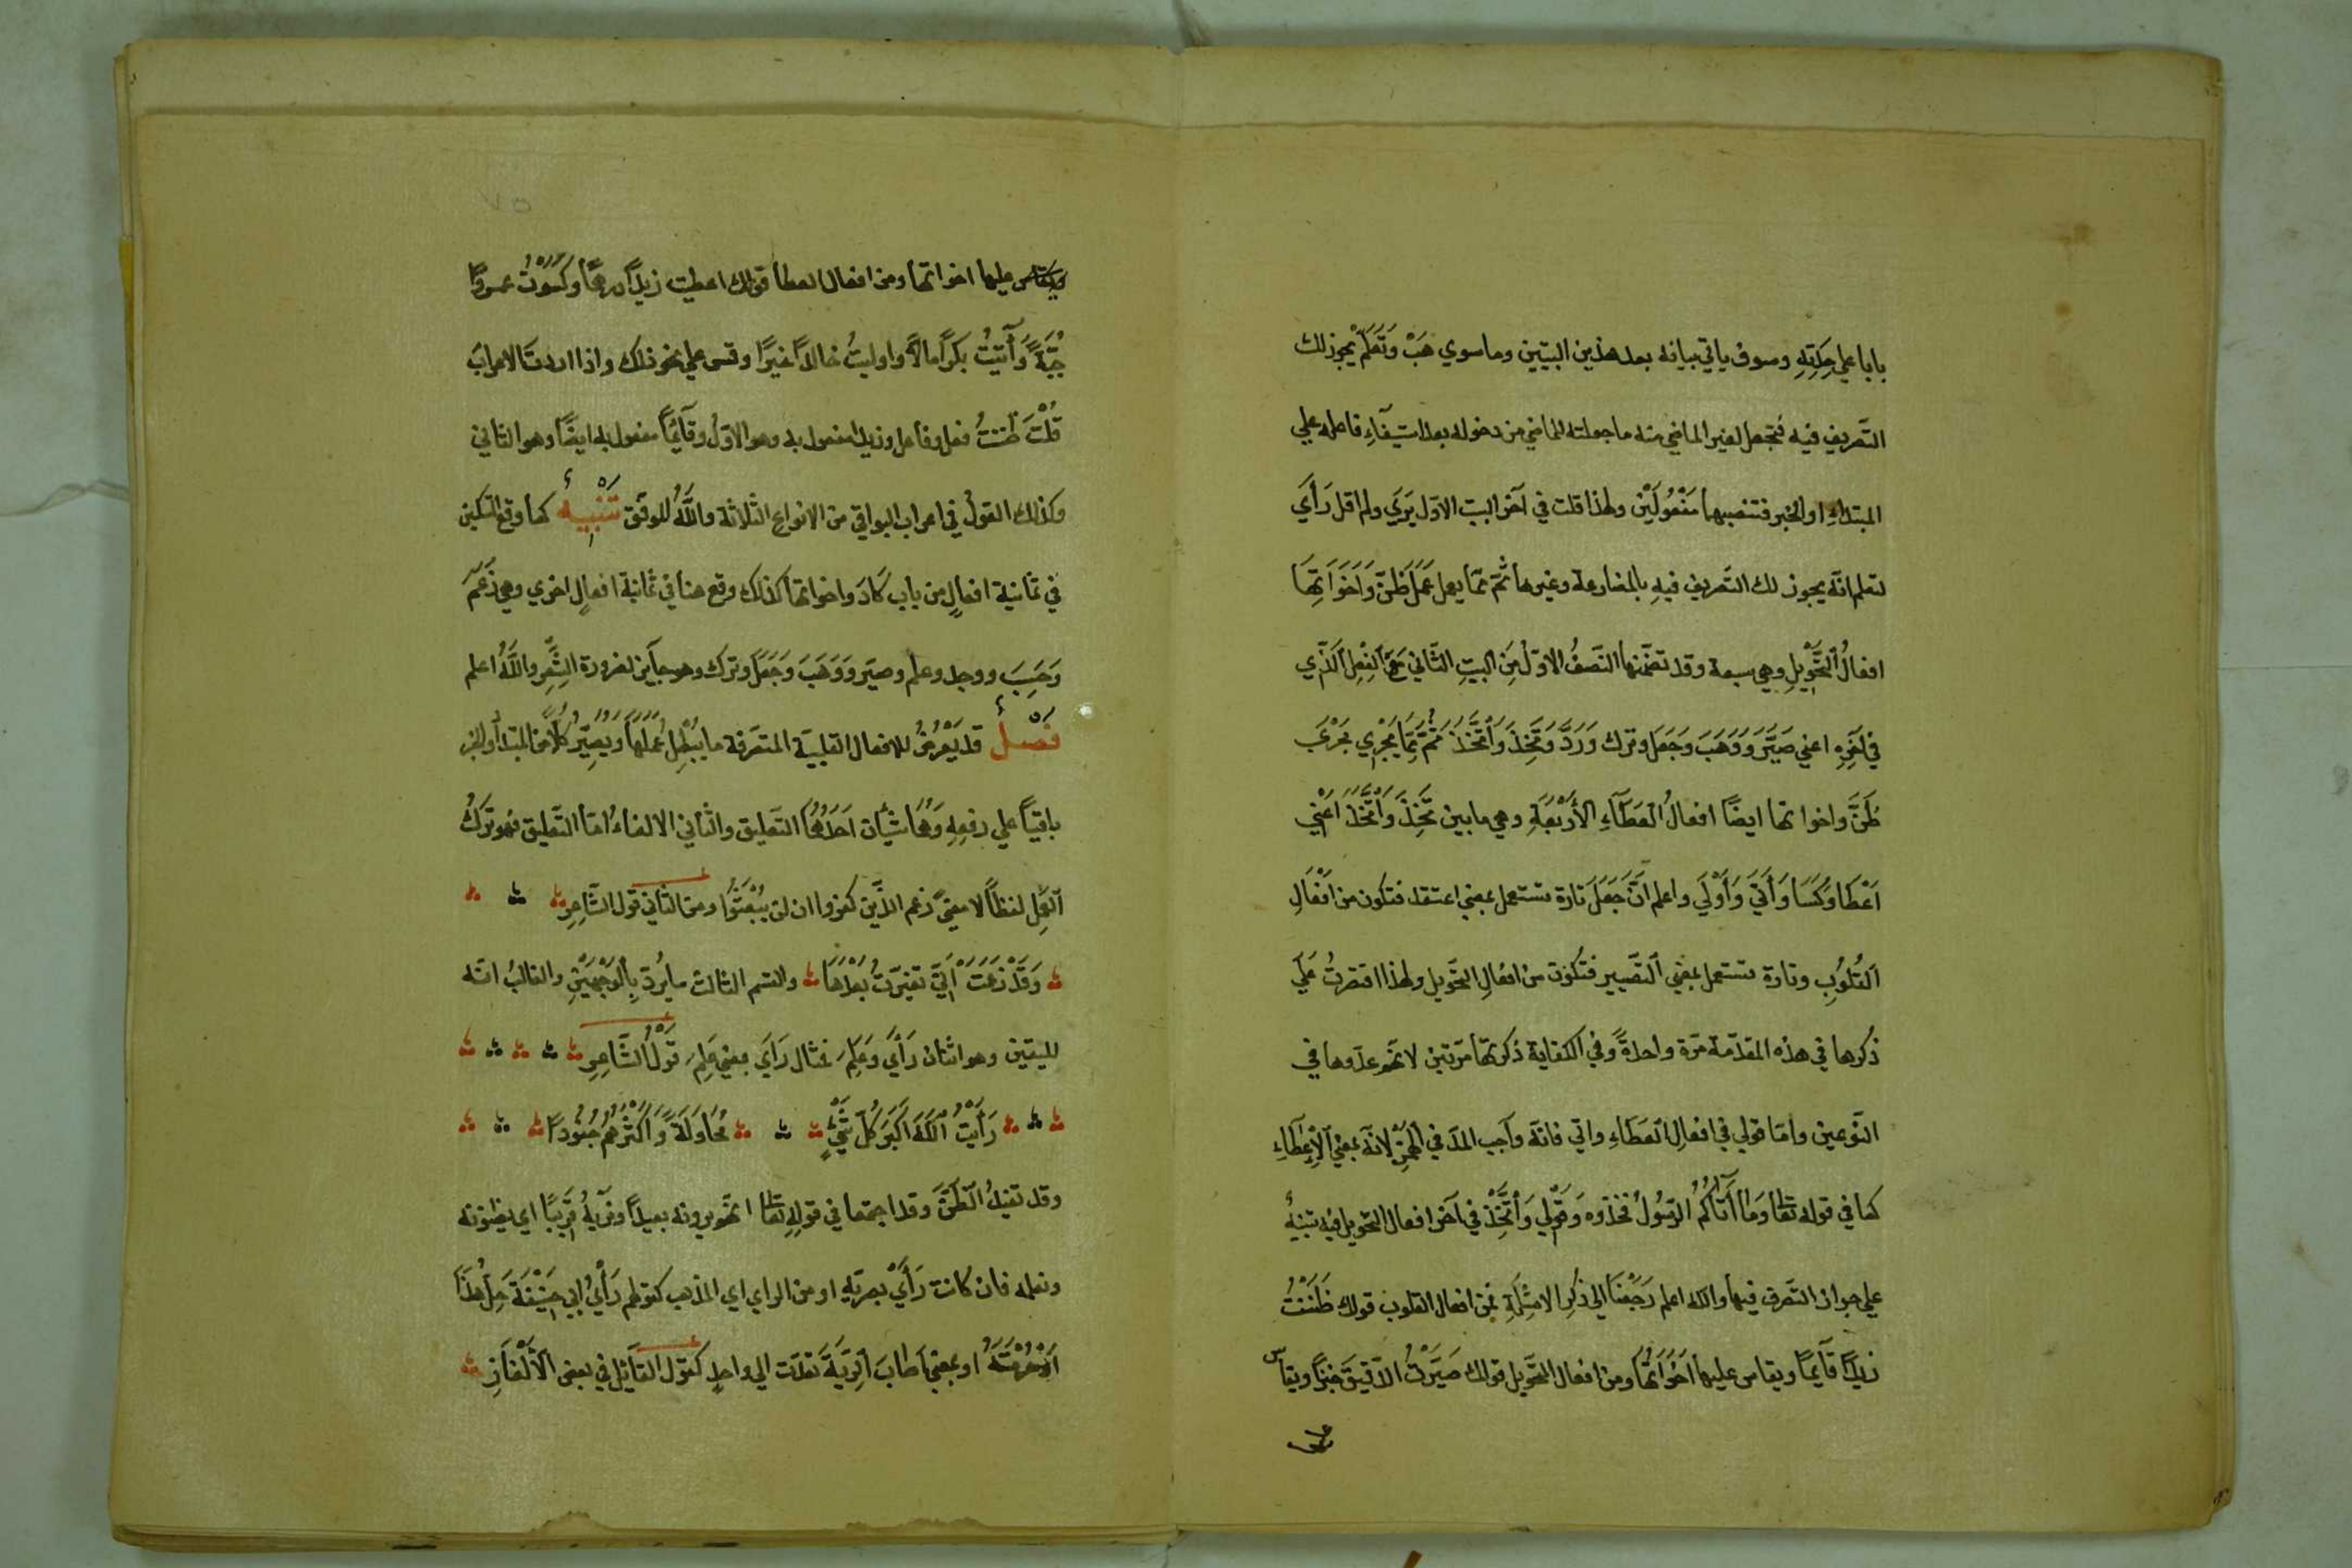 بابا علي حِكتِهِ وسوف ياتي بيانه بعد هذين البيتين وما سوي هَبْ وَتَعَلَّمْ يجوز لك
التَّصريف فيه فتجعل لغير الماضي منه ما جعلته للماضي من دخوله بعد استيفآءِ فاعله علي
المبتداءِ او الخبر فتنصبهما مَفْعُولَيْن ولهذا قلت في آخر البيت الاوّل يَرَي ولم اقل رَأَيَ
لتعلم انّه يجوز لك التّصريف فيهِ بالمضارعة وغيرها ثمّ ممّا يعمل عَمَلَ ظَنَّ وَاَخَوَاتِهَا
افعالُ التَّحْوِيلِ وهي سبعة وقد تضمّنها النّصفُ الاوّل مِنَ البيتِ الثّاني مَعَ الفِعِل الَّذي
في آخِرِهِ اعني صَيَّرَ وَوَهَبَ وَجَعَلَ وترك وَرَدَّ وَتَخِذَ وَاتَّخَذَ ثمَّ مِمَّا يَجْرِي مَجْرَيَ
ظَنَّ واخواتها ايضًا افعالُ العَطَآءِ الأَرْبَعَةِ وهي ما بين تَخِذَ وَاتَّخَذَ اعني
اَعْطَا وَكَسَا وَأَتَيَ وَأَوْلَي واعلم انَّ جَعَلَ تارة تستعمل بمعني اعتقد فتكون من افْعَالِ
القُلُوبِ وتارة تستعمل بمعني التَّصيير فتكون من افعالِ التّحويل ولهذا اقتصرتُ عَلَي
ذكرها في هذه المقدّمة مَرّة واحدةً وفي الكفاية ذكرتها مرّتين لانّهم عدّوها في
النّوعين وامّا قولي في افعالِ العَطَاءِ واتي فانّه واجب المدّ في الهمزِ لانّه بمعني الاِعْطَآءِ
كما في قوله تعا وَمَا أَتَاكُمُ الرّسُولُ فخذوه وَقَوْلِي وَاتَّخَذَ في آخر افعال التّحويل فيه تنبيهٌ
علي جواز التّصرف فيها والله اعلم رَجَعْنَا الي ذكر الامثِلَةِ فمن افعال القلوب قولك ظَنَنْتُ
زيداً قَآئِمًا ويقاس عليها اَخَوَاتُهَا ومن افعال التّحويل قولك صَيَّرْتُ الدّقيقَ خبزاً ويقاس
عليها اخواتها ومن افعال العطا قولك اعطيت زيداً درهمًا وَكَسَوْتُ عمروًا
جُبَّةً وَأَتَيْتُ بكرًا مالاً واوليتُ خالدًا خيرًا وقس علي نحو ذلك واذا اردتَ الاعرابَ
قُلْتَ ظَنَنْتُ فعل وفاعل وزيدا مفعول به وهو الاوّل وقَآئِمًا مفعول به ايضًا وهو الثاني
وكذلك القولُ في اعراب البواقي من الانواع الثّلاثة واللَّهُ الموفّق تَنْبِيهٌ كما وقع التسكين
في ثمانية افعالٍ من باب كَادَ واخواتها كذلك وقع هنا في ثمانية افعالٍ اخري وهي زَعَمَ
وَحَسِبَ ووجد وعلم وصيّر وَوَهَبَ وَجَعَلَ وترك وهو جآيز لضرورة الشِّعْرِ واللَّهُ اعلم
فَصْلٌ قد يَعْرِضُ للافعال القلبيّة المتصرّفة ما يُبْطِلُ عَمَلَهَا وَيُصَيِّرُ كُلًّا من المبتدأ والخبر
باقيًا علي رفعِهِ وَهُمَا شيْئَان اَحَدُهُمَا التّعليق والثّاني الالغاءُ امّا التّعليق فهو تَرْكُ
العَمَلِ لفظًا لا معنيً زعم الّذين كفروا ان لن يُبْعَثُوا ومن الثّاني قول الشّاعِرِ
وَقَدْ زَعَمَتْ أَنِّي تَغَيَّرْتُ بَعْدَهَا والقسم الثالث ما يُرَدّ بِالوَجْهَيْنِ والغالبُ انّه
لليقين وهو اثنان رَأَيَ وَعَلِمَ فمثال رَأَيَ بمعني عَلِمَ قَوْلُ الشَّاعِرِ
رَأَيْتُ اللَّهَ اَكْبَرَ كُلِّ شَيْءٍ مُحَاوَلَةً وَاَكْثَرَهُمْ جُنُودًا
وقد تفيدُ الظَّنَّ وقد اجتمعا في قولهِ تعا انّهم يرونه بعيداً ونريهُ قَرِيبًا اي يظنّونه
ونعلمه فان كانت رَأَيَ بصريّهِ او من الراي اي المذهب كقولهم رَأَيَ ابي حَنِيْفَةَ حِلَّ هَذَا
اَوْ حُرْمَتَهُ او بمعني اَصَابَ الرِّيَةَ تعدّت الي واحدٍ كقول القَآئِل في بعض الاَلْغَازِ